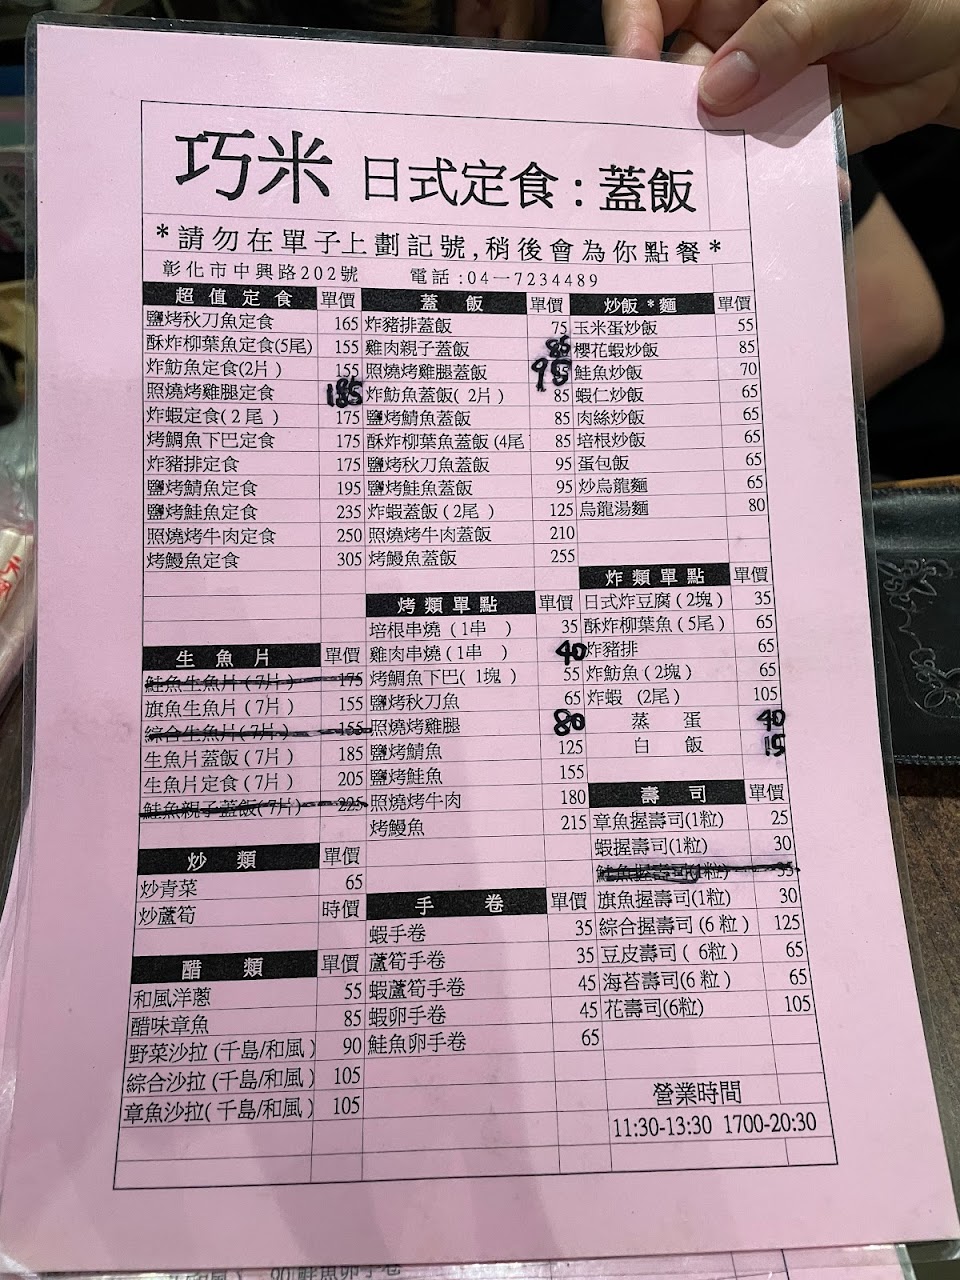 巧米 日式定食:蓋飯
*請勿在單子上劃記號,稍後會為你點餐*
彰化市中興路202號 電話:04－7234489
超值定食 單價
鹽烤秋刀魚定食 165
酥炸柳葉魚定食(5尾) 155
炸魴魚定食(2片) 155
照燒烤雞腿定食 185
炸蝦定食(2尾) 175
烤鯛魚下巴定食 175
炸豬排定食 175
鹽烤鯖魚定食 195
鹽烤鮭魚定食 235
照燒烤牛肉定食 250
烤鰻魚定食 305
生魚片 單價
鮭魚生魚片(7片) 175
旗魚生魚片(7片) 155
綜合生魚片(7片) 155
生魚片蓋飯(7片) 185
生魚片定食(7片) 205
鮭魚親子蓋飯(7片) 225
炒類 單價
炒青菜 65
炒蘆筍 時價
醋類 單價
和風洋蔥 55
醋味章魚 85
野菜沙拉(千島/和風) 90
綜合沙拉(千島/和風) 105
章魚沙拉(千島/和風) 105
蓋飯 單價
炸豬排蓋飯 75
雞肉親子蓋飯 85
照燒烤雞腿蓋飯 95
炸魴魚蓋飯(2片) 85
鹽烤鯖魚蓋飯 85
酥炸柳葉魚蓋飯(4尾 85
鹽烤秋刀魚蓋飯 95
鹽烤鮭魚蓋飯 95
炸蝦蓋飯(2尾) 125
照燒烤牛肉蓋飯 210
烤鰻魚蓋飯 255
烤類單點 單價
培根串燒(1串) 35
雞肉串燒(1串) 40
烤鯛魚下巴(1塊) 55
鹽烤秋刀魚 65
照燒烤雞腿 80
鹽烤鯖魚 125
鹽烤鮭魚 155
照燒烤牛肉 180
烤鰻魚 215
手卷 單價
蝦手卷 35
蘆筍手卷 35
蝦蘆筍手卷 45
蝦卵手卷 45
鮭魚卵手卷 65
炒飯*麵 單價
玉米蛋炒飯 55
櫻花蝦炒飯 85
鮭魚炒飯 70
蝦仁炒飯 65
肉絲炒飯 65
培根炒飯 65
蛋包飯 65
炒烏龍麵 65
烏龍湯麵 80
炸類單點 單價
日式炸豆腐(2塊) 35
酥炸柳葉魚(5尾) 65
炸豬排 65
炸魴魚(2塊) 65
炸蝦 (2尾) 105
蒸蛋 40
白飯 15
壽司 單價
章魚握壽司(1粒) 25
蝦握壽司(1粒) 30
鮭魚握壽司(1粒) 35
旗魚握壽司(1粒) 30
綜合握壽司(6粒) 125
豆皮壽司(6粒) 65
海苔壽司(6粒) 65
花壽司(6粒) 105
營業時間
11:30-13:30 1700-20:30